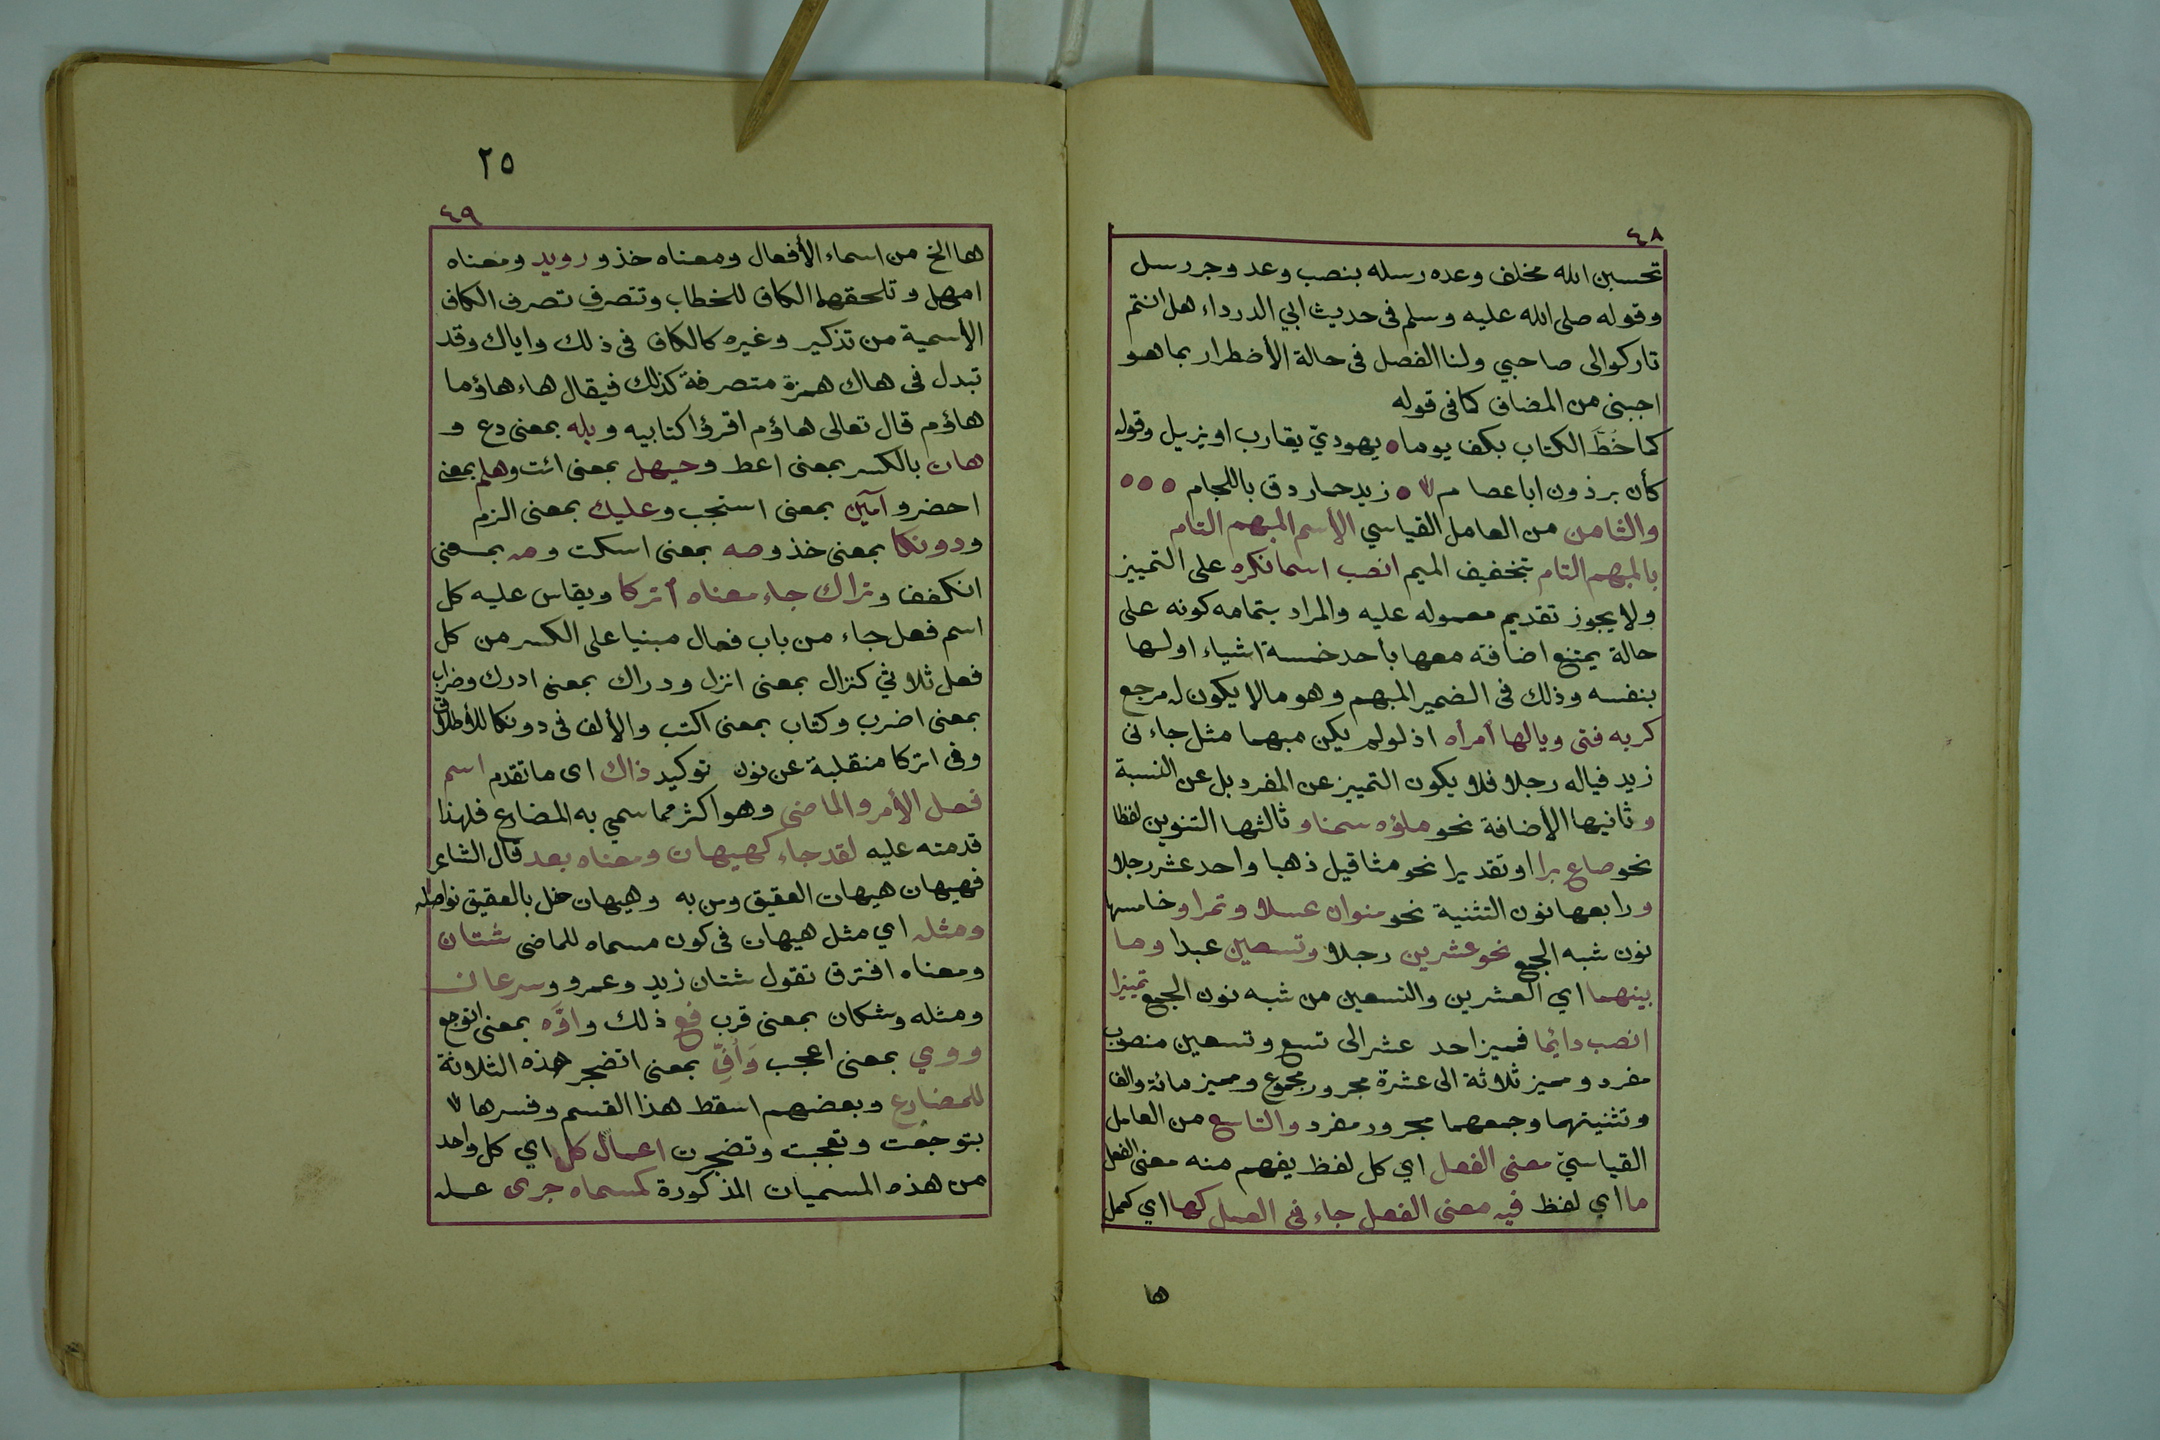 ٤٨
تحسبن الله مخلف وعده رسله بنصب وعد وجر رسل
وقوله صلى الله عليه وسلم فى حديث ابي الدرداء هل انتم
تاركوا لى صاحبي ولنا الفصل فى حالة الأضطرار بما هو
اجبنى من المضاف كما فى قوله
كما خُطَّ الكتاب بكف يوما ه يهوديّ يقارب او يزيل وقوله
كأن برذون ابا عصام ه زيد حمار دق باللجام ه ه ه
والثامن من العامل القياسي الأسم المبهم التام
بالمبهم التام بتخفيف الميم انصب اسما نكره على التمييز
ولا يجوز تقديم معموله عليه والمراد بتمامه كونه على
حالة يمتنع اضافته معها بأحد خمسة اشياء اولها
بنفسه وذلك فى الضمير المبهم وهو ما لا يكون له مرجع
كربه فتى ويالها أمرأه اذ لو لم يكن مبهما مثل جاءنى
زيد فياله رجلا فلا يكون التمييز عن المفرد بل عن النسبة
وثانيها الأضافة نحو ملؤه سمنا وثالثها التنوين لفظا
نحو صاع برا او تقديرا نحو مثاقيل ذهبا واحد عشر رجلا
ورابعها نون التثنية نحو منوان عسلا وتمرا وخامسها
نون شبه الجمع نحو عشرين رجلا وتسعين عبدا وما
بينهما اي العشرين والتسعين من شبه نون الجمع تمييزا
انصب دائما فمميز احد عشر الى تسع وتسعين منصوب
مفرد ومميز ثلاثة الى عشرة مجرور مجموع ومميز مائة والف
وتثنيتهما وجمعهما مجرور مفرد والتاسع من العامل
القياسيّ معنى الفعل اي كل لفظ يفهم منه معنى الفعل
ما اي لفظ فيه معنى الفعل جاء فى العمل كها اي كعمل
ها
٢٥
٤٩
ها الخ من اسماء الأفعال ومعناه خذ ورويد ومعناه
امهل وتلحقها الكاف للخطاب وتتصرف تصرف الكاف
الأسمية من تذكير وغيره كالكاف فى ذلك واياك وقد
تبدل فى هاك همزة متصرفة كذلك فيقال هاء هاؤما
هاؤم قال تعالى هاؤم اقرؤا كتابيه وبله بمعنى دع و
هات بالكسر بمعنى اعط وحيهل بمعنى ائت وهلم بمعنى
احضر وآمين بمعنى استجب وعليك بمعنى الزم
ودونكا بمعنى خذ وصه بمعنى اسكت ومه بمعنى
انكفف وتراك جاء معناه أتركا ويقاس عليه كل
اسم فعل جاء من باب فعال مبنيا على الكسر من كل
فعل ثلاثي كنزال بمعنى انزل ودراك بمعنى ادرك وضراب
بمعنى اضرب وكتاب بمعنى اكتب والألف فى دونكا للأطلاق
وفى اتركا منقلبة عن نون توكيد ذاك اى ما تقدم اسم
فعل الأمر والماضى وهو اكثر مما سمي به المضارع فلهذا
قدمته عليه لقد جاء كهيهات ومعناه بعد قال الشاعر
فهيهات هيهات العقيق ومن به وهيهات خل بالعقيق نواصله
ومثله اي مثل هيهات فى كون مسماه للماضى شتان
ومعناه افترق تقول شتان زيد وعمرو وسرعان
ومثله وشكان بمعنى قرب فع ذلك واوّه بمعنى اتوجع
ووي بمعنى اعجب وَأُفّ بمعنى اتضجر هذه الثلاثة
للمضارع وبعضهم اسقط هذا القسم وفسرها
بتوجعت وتعجبت وتضجرت اعمال كل اي كل واحد
من هذه المسميات المذكورة كمسماه جرى عمله